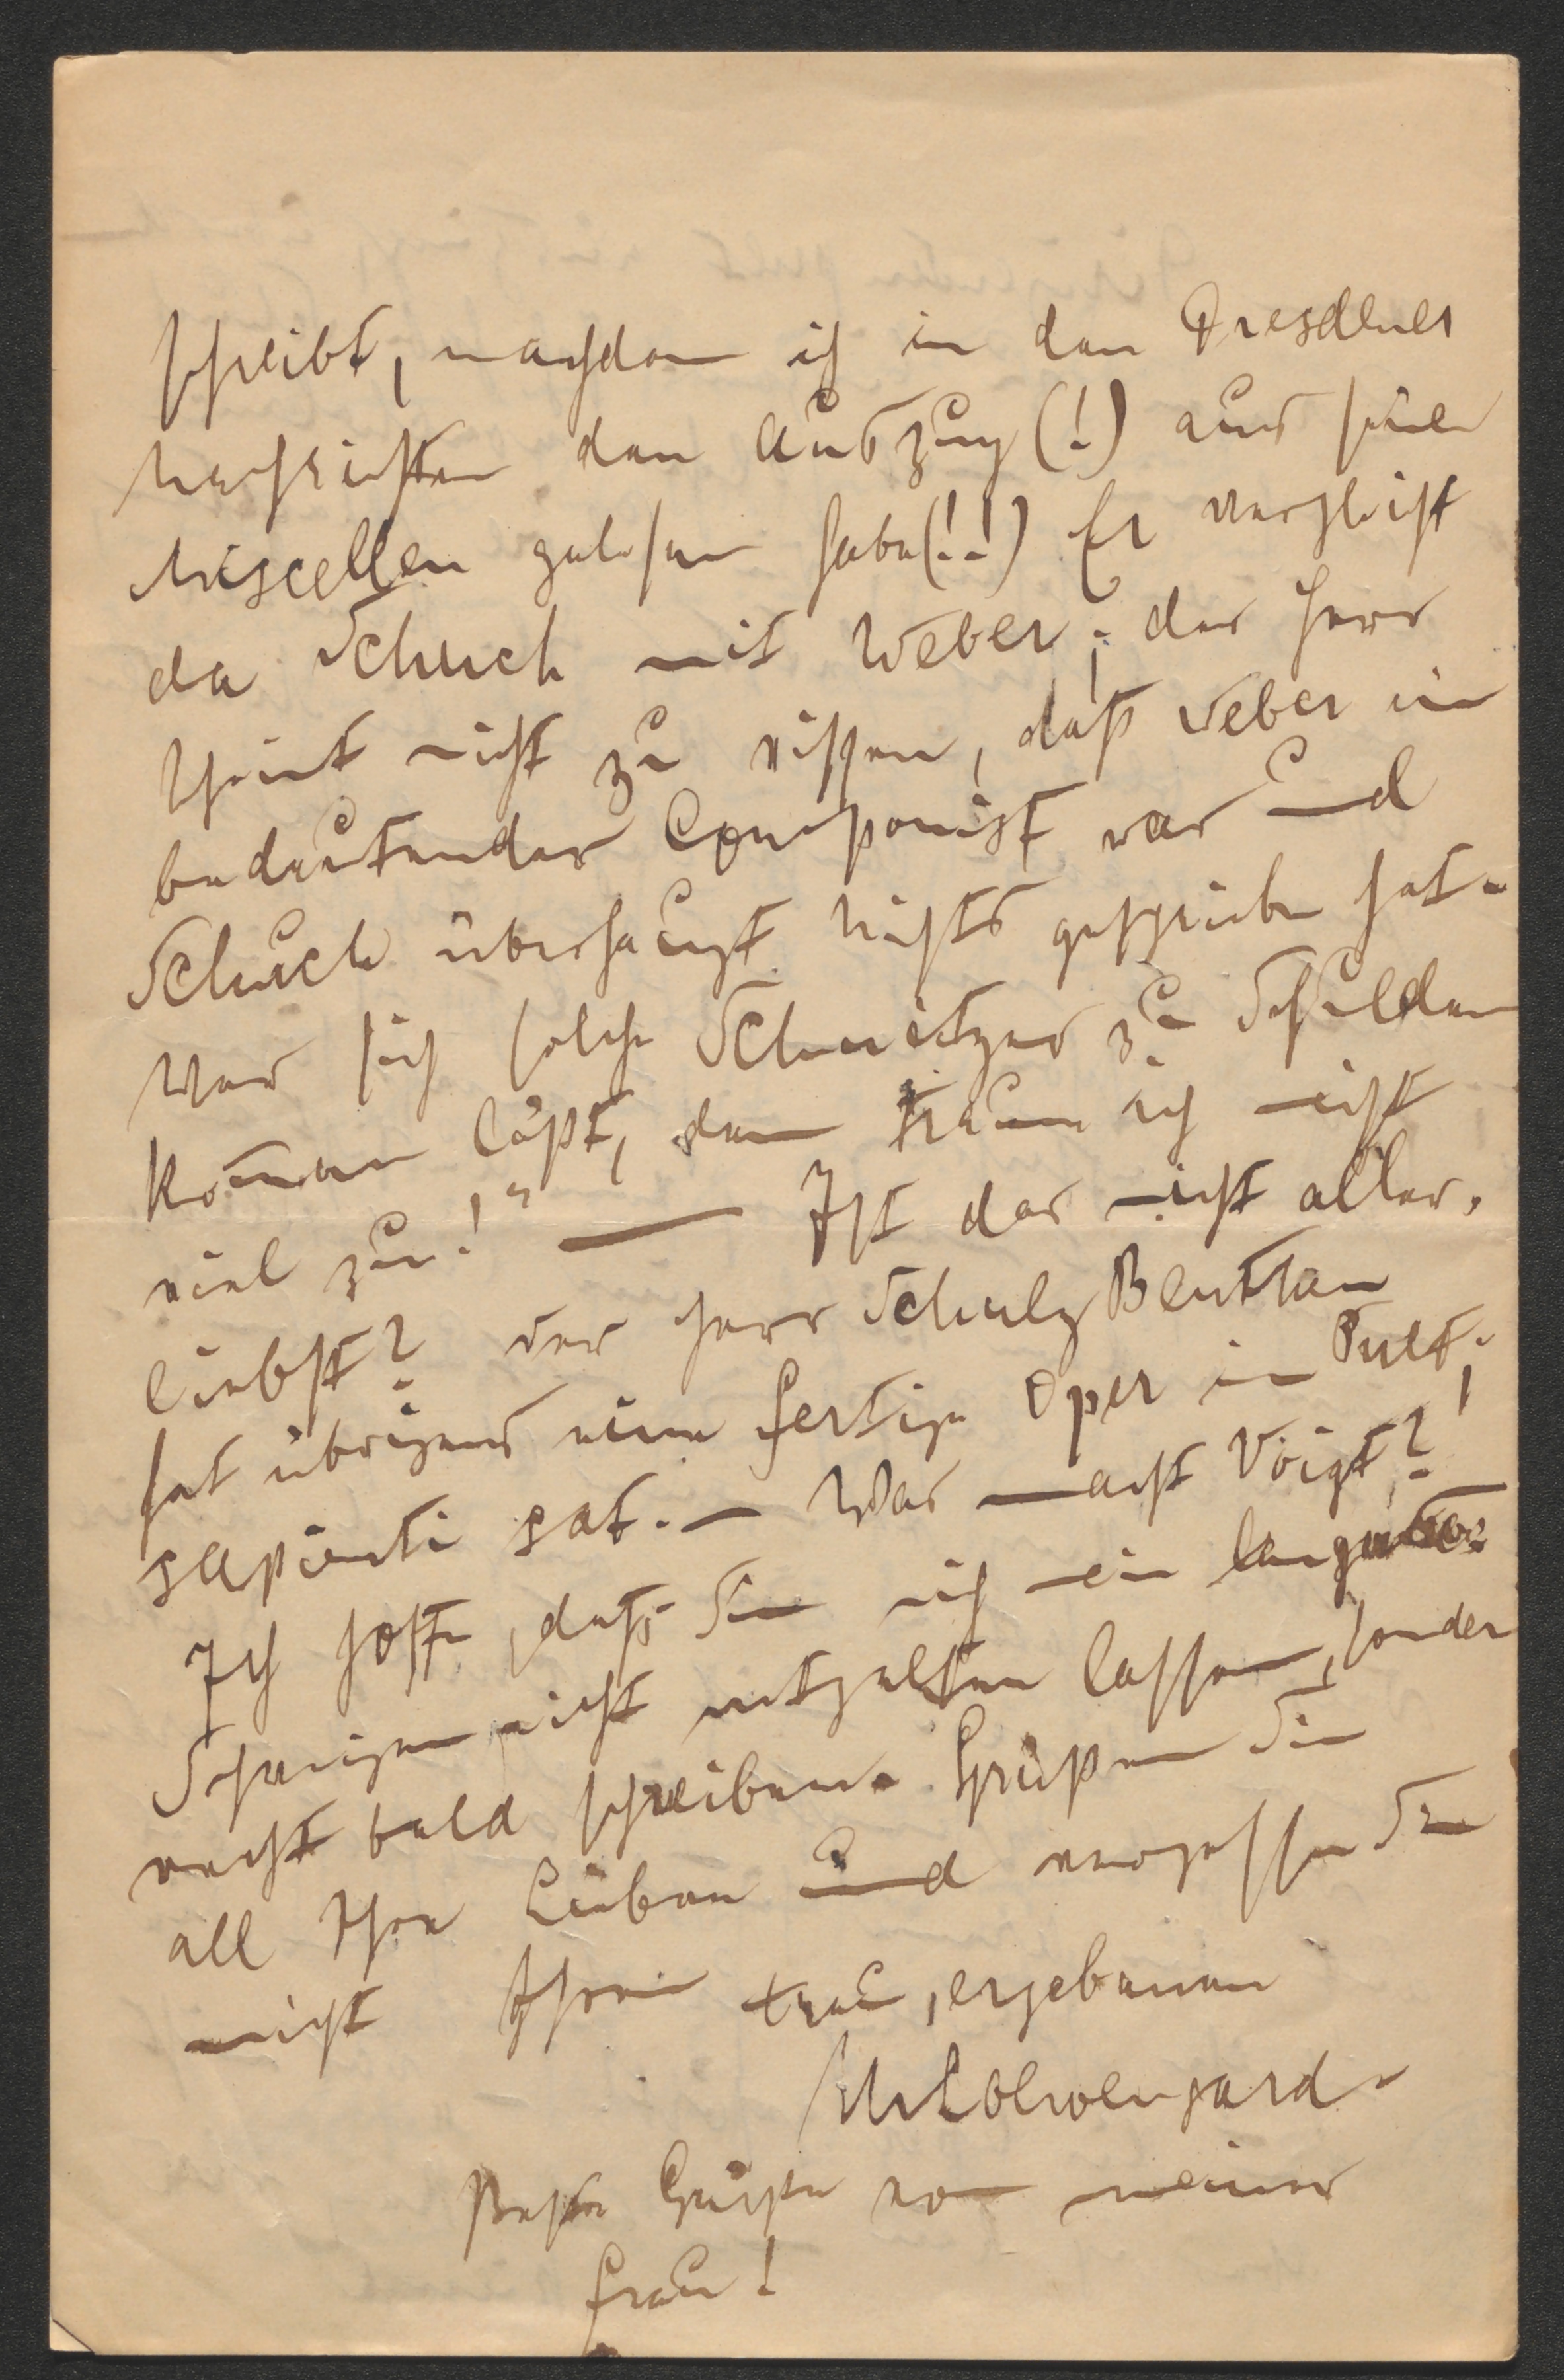 schreibt, nachdem ich in den Dresdener
Nachrichten den Auszug (!) aus seinen
Miscellen gelesen habe (!!) Er vergleicht
da Schuch mit Weber; der Herr
scheint nicht zu wissen, daß Weber ein
bedeutender Componist war und
Schuch überhaupt nichts geschrieben hat.
Wer sich solche Schnitzer zu Schulden
kom̄en läßt, dem traue ich nicht
viel zu!" — Ist das nicht aller-
liebst? Der Herr Schulz Beuthen
hat übrigens eine fertige Oper im Pult;
sapienti sat. — Was macht Voigt?
Ich hoffe, daß Sie mich mein langes
Schweigen nicht entgelten lassen, sondern
recht bald schreiben. Grüßen Sie
all Ihre Lieben und vergessen Sie
nicht Ihren treu, ergebenen
MLoewengard.
Beste Grüße von meiner
Frau!